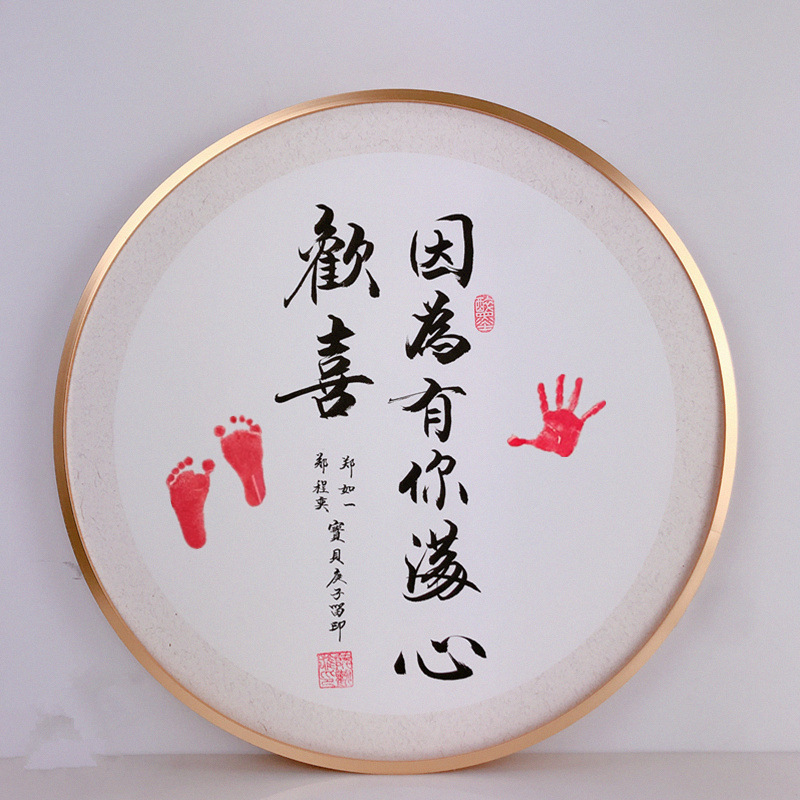 因為有你滿心
歡喜
郑如一
郑程奕
寶貝庚子留印